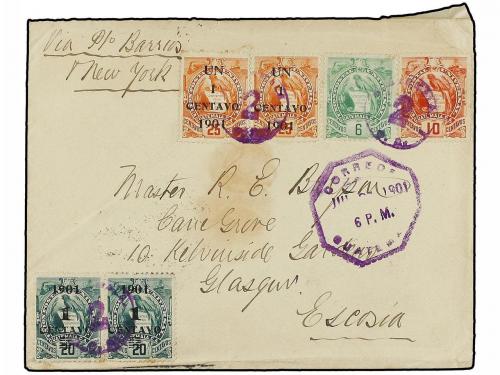 Via Pto Barrios
New York
UN
1
CENTAVO
1901
25
UN
1
CENTAVO
1901
25
6
10
2
2
CORREOS
1901
6 P. M.
Master R. E.
Cave Grove
10 Kelvinside Gardens
Glasgow
Escosia
1901
1
CENTAVO
20
1901
1
CENTAVO
20
2